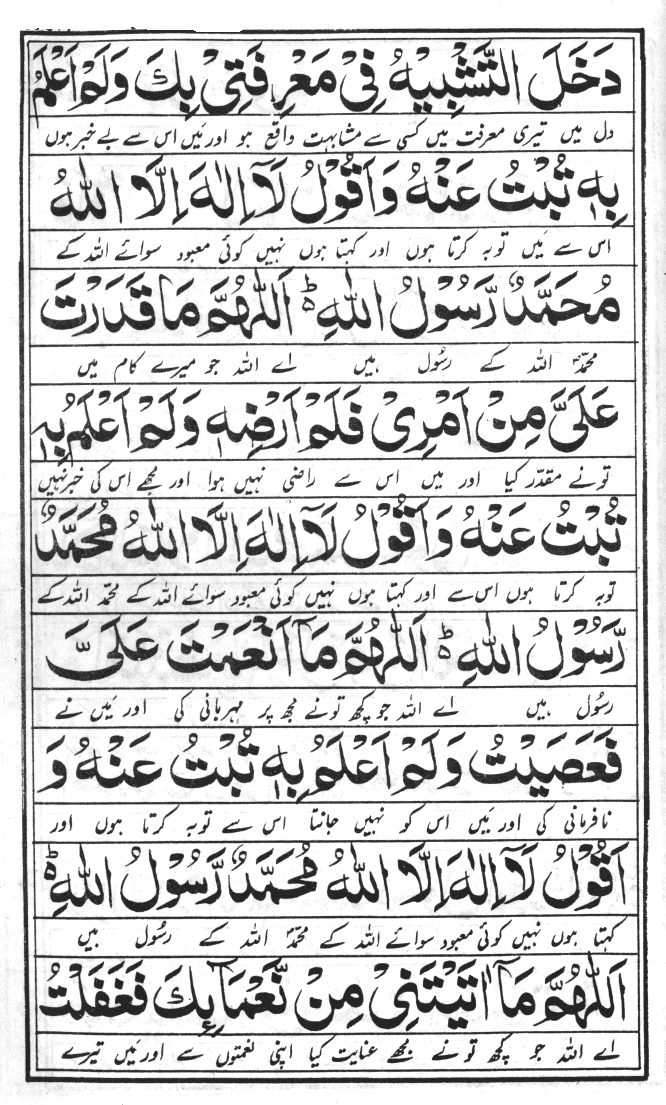 دَخَلَ التَّشْبِيْهُ فِىْ مَعْرِفَتِىْ بِكَ وَلَمْ اَعْلَمْ
دل میں تیری معرفت میں کسی سے مشابہت واقع ہو اور میں اس سے بے خبر ہوں
بِهٖ تُبْتُ عَنْهُ وَاَقُوْلُ لَآ اِلٰهَ اِلَّا اللهُ
اس سے میں توبہ کرتا ہوں اور کہتا ہوں نہیں کوئی معبود سوائے اللہ کے
مُحَمَّدٌ رَّسُوْلُ اللهِ ؕ اَللّٰهُمَّ مَا قَدَرْتَ
محمدؐ اللہ کے رسول ہیں اے اللہ جو میرے کام میں
عَلَىَّ مِنْ اَمْرِىْ فَلَمْ اَرْضِهٖ وَلَمْ اَعْلَمْ بِهٖ
تو نے مقدّر کیا اور میں اس سے راضی نہیں ہوا اور مجھے اس کی خبر نہیں
تُبْتُ عَنْهُ وَاَقُوْلُ لَآ اِلٰهَ اِلَّا اللهُ مُحَمَّدٌ
توبہ کرتا ہوں اس سے اور کہتا ہوں نہیں کوئی معبود سوائے اللہ کے محمد اللہ کے
رَّسُوْلُ اللهِ ؕ اَللّٰهُمَّ مَآ اَنْعَمْتَ عَلَىَّ
رسول ہیں اے اللہ جو کچھ تو نے مجھ پر مہربانی کی اور میں نے
فَعَصَيْتُ وَلَمْ اَعْلَمْ بِهٖ تُبْتُ عَنْهُ وَ
نافرمانی کی اور میں اس کو نہیں جانتا اس سے توبہ کرتا ہوں اور
اَقُوْلُ لَآ اِلٰهَ اِلَّا اللهُ مُحَمَّدٌ رَّسُوْلُ اللهِ ؕ
کہتا ہوں نہیں کوئی معبود سوائے اللہ کے محمدؐ اللہ کے رسول ہیں
اَللّٰهُمَّ مَآ اٰتَيْتَنِىْ مِنْ نَّعْمَآئِكَ فَغَفَلْتُ
اے اللہ جو کچھ تو نے مجھے عنایت کیا اپنی نعمتوں سے اور میں تیرے